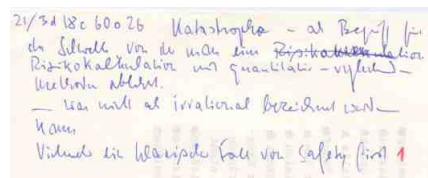 21/3d18c60o26 Katastrophe – als Begriff für
die Schwelle von der man eine
Risikokalkulation mit quantitativ-vergleichend-
Methoden ablehnt.
— was nicht als irrational bezeichnet werden
kann
Vielmehr ein klassischer Fall von safety first 1